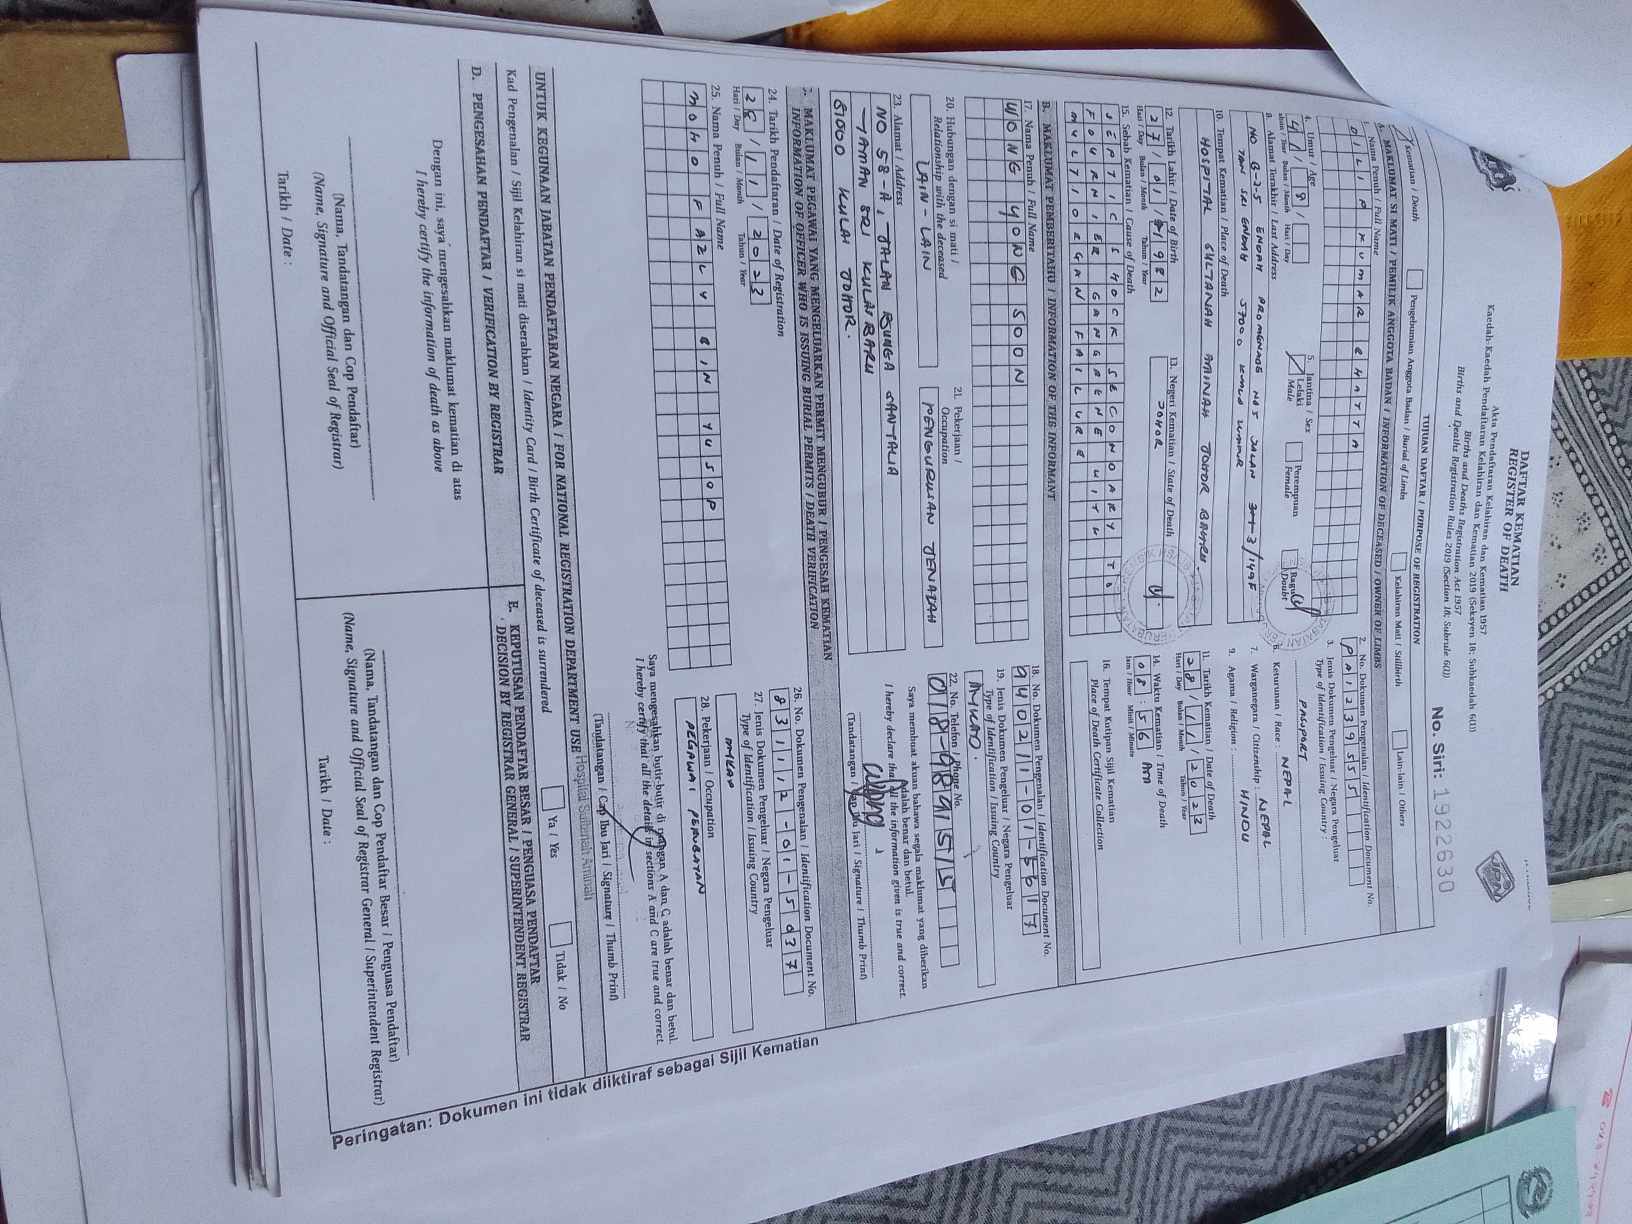 DAFTAR KEMATIAN
REGISTER OF DEATH
Akta Pendaftaran Kelahiran dan Kematian 1957
Kaedah-Kaedah Pendaftaran Kelahiran dan Kematian 2019 (Seksyen 18; Subkaedah 6(1))
Births and Deaths Registration Act 1957
Births and Deaths Registration Rules 2019 (Section 18; Subrule 6(1))
No. Siri: 1922630
TUJUAN DAFTAR / PURPOSE OF REGISTRATION
Kematian / Death
Pengebumian Anggota Badan / Burial of Limbs
Kelahiran Mati / Stillbirth
Lain-lain / Others
A. MAKLUMAT SI MATI / PEMILIK ANGGOTA BADAN / INFORMATION OF DECEASED / OWNER OF LIMBS
1. Nama Penuh / Full Name
DILIP KUMAR KHATTA
2. No. Dokumen Pengenalan / Identification Document No.
PA1239555
3. Jenis Dokumen Pengenalan / Negara Pengeluar
Type of Identification / Issuing Country :
PASPORT
4. Umur / Age
41 / 9 /
Tahun / Year Bulan / Month Hari / Day
5. Jantina / Sex
Lelaki
Male
Perempuan
Female
Ragu
Doubt
6. Keturunan / Race : NEPAL
7. Warganegara / Citizenship : NEPAL
8. Alamat Terakhir / Last Address
NO ENDAH NO 5 JALAN 3/149F
TMN SRI ENDAH 5700
9. Agama / Religion : HINDU
10. Tempat Kematian / Place of Death
HOSPITAL SULTANAH AMINAH JOHOR BAHRU.
11. Tarikh Kematian / Date of Death
28/11/2023
Hari / Day Bulan / Month Tahun / Year
12. Tarikh Lahir / Date of Birth
27/01/1982
Hari / Day Bulan / Month Tahun / Year
13. Negeri Kematian / State of Death
JOHOR
14. Waktu Kematian / Time of Death
08:56 AM
Jam / Hour Minit / Minute
15. Sebab Kematian / Cause of Death
SEPTIC SHOCK SECONDARY TO
FOURNIER GANGRENE WITH
MULTIORGAN FAILURE
16. Tempat Kutipan Sijil Kematian
Place of Death Certificate Collection
B. MAKLUMAT PEMBERITAHU / INFORMATION OF THE INFORMANT
17. Nama Penuh / Full Name
WONG YONG SOON
18. No. Dokumen Pengenalan / Identification Document No.
940211-01-5617
19. Jenis Dokumen Pengeluar / Negara Pengeluar
Type of Identification / Issuing Country
MYKAD.
20. Hubungan dengan si mati /
Relationship with the deceased
LAIN-LAIN
21. Pekerjaan /
Occupation
PENGURUSAN JENAZAH
22. No. Telefon / Phone No.
018-9891515
23. Alamat / Address
NO 58-A, JALAN BUNGA SANTALIA
TAMAN SRI KULAI BARU
81000 KULAI JOHOR.
Saya membuat akuan bahawa segala maklumat yang diberikan
adalah benar dan betul.
I hereby declare that all the information given is true and correct.
(Tandatangan / Cap Ibu Jari / Signature / Thumb Print)
C. MAKLUMAT PEGAWAI YANG MENGELUARKAN PERMIT MENGUBUR / PENGESAH KEMATIAN
INFORMATION OF OFFICER WHO IS ISSUING BURIAL PERMITS / DEATH VERIFICATION
24. Tarikh Pendaftaran / Date of Registration
28/11/2023
Hari / Day Bulan / Month Tahun / Year
25. Nama Penuh / Full Name
MOHD FAZLY BIN YUSOP
26. No. Dokumen Pengenalan / Identification Document No.
831112-01-5037
27. Jenis Dokumen Pengeluar / Negara Pengeluar
Type of Identification / Issuing Country
MYKAD
28. Pekerjaan / Occupation
PEGAWAI PERUBATAN
Saya mengesahkan butir-butir di ruangan A dan C adalah benar dan betul.
I hereby certify that all the details in sections A and C are true and correct.
Hospital Sultanah Aminah
(Tandatangan / Cap Ibu Jari / Signature / Thumb Print)
UNTUK KEGUNAAN JABATAN PENDAFTARAN NEGARA / FOR NATIONAL REGISTRATION DEPARTMENT USE
Kad Pengenalan / Sijil Kelahiran si mati diserahkan / Identity Card / Birth Certificate of deceased is surrendered
Ya / Yes
Tidak / No
D. PENGESAHAN PENDAFTAR / VERIFICATION BY REGISTRAR
Dengan ini, saya mengesahkan maklumat kematian di atas
I hereby certify the information of death as above
(Nama, Tandatangan dan Cop Pendaftar)
(Name, Signature and Official Seal of Registrar)
Tarikh / Date :
E. KEPUTUSAN PENDAFTAR BESAR / PENGUASA PENDAFTAR
DECISION BY REGISTRAR GENERAL / SUPERINTENDENT REGISTRAR
(Nama, Tandatangan dan Cop Pendaftar Besar / Penguasa Pendaftar)
(Name, Signature and Official Seal of Registrar General / Superintendent Registrar)
Tarikh / Date :
Peringatan: Dokumen ini tidak diiktiraf sebagai Sijil Kematian